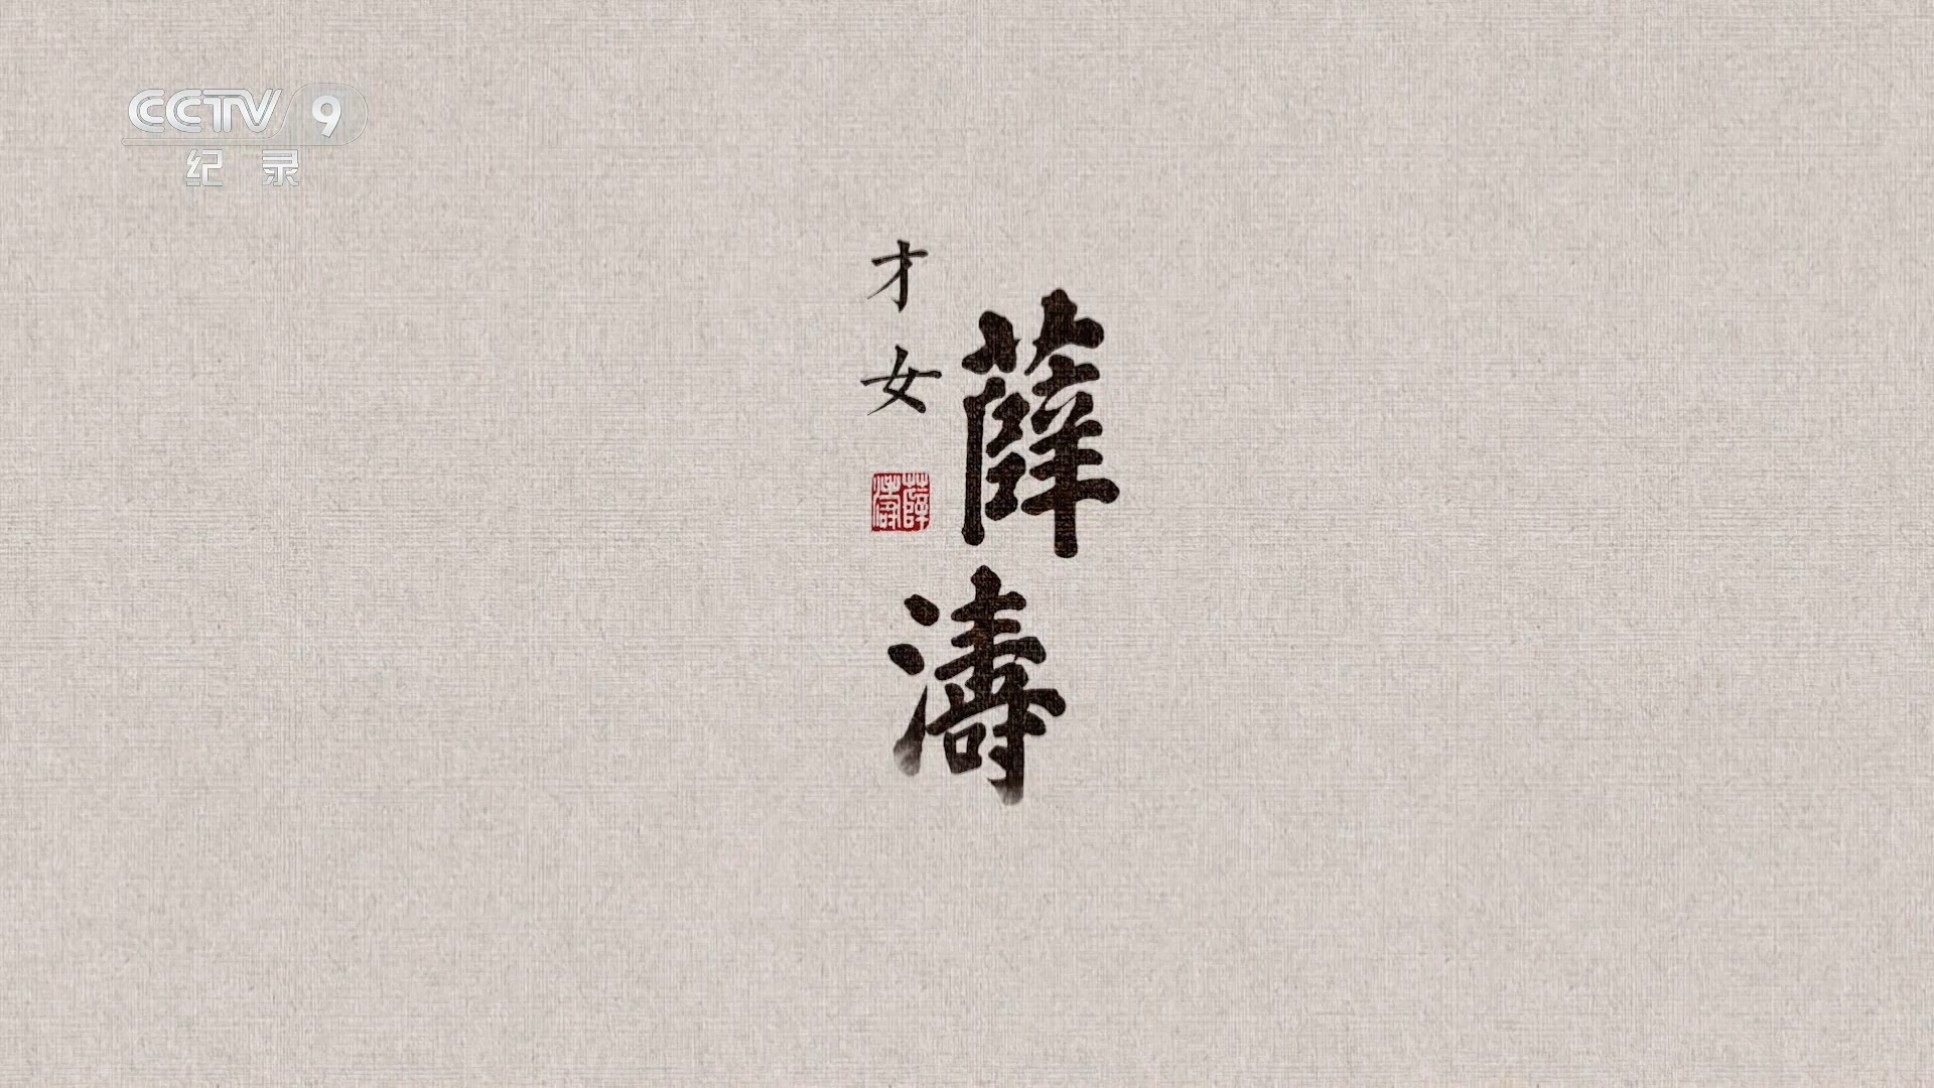 CCTV 9
纪录
薛濤
才女
薛濤